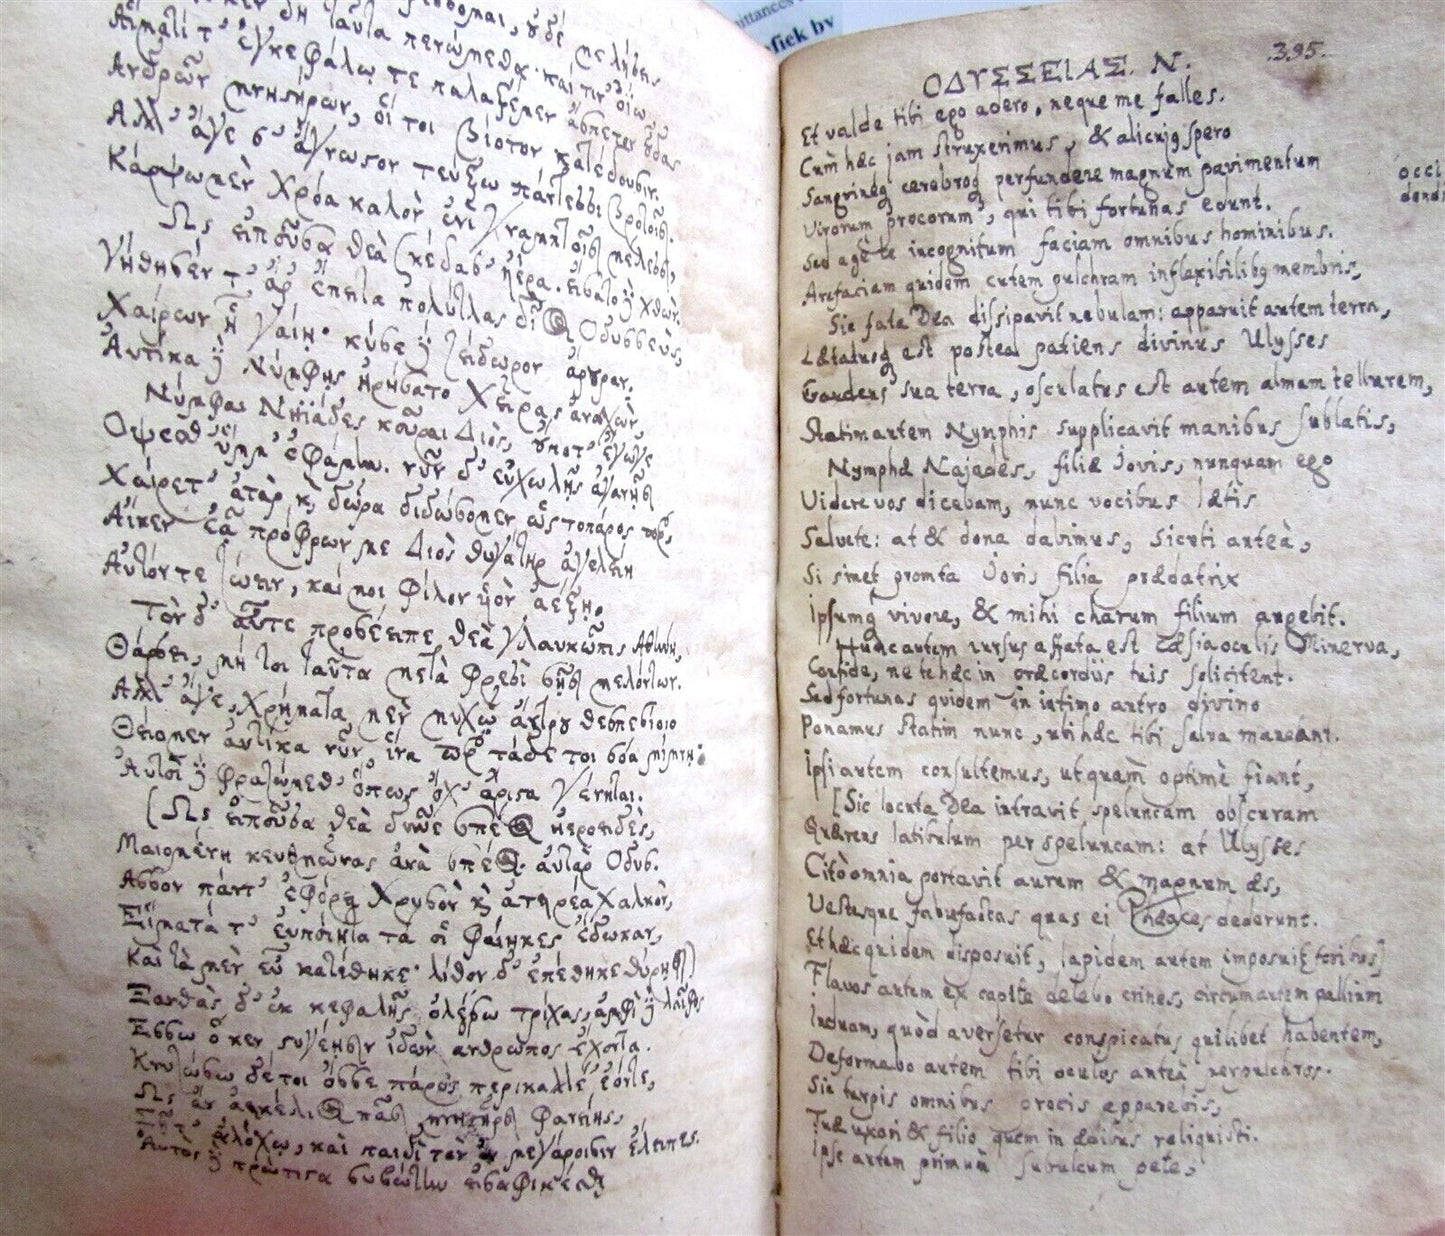 ittances
ofiek by
Αἵματί τ' ἐγκεφάλῳ τε παλαξέμεν ἄσπετον οὖδας
Ἀνδρῶν μνηστήρων, οἵ τοι βίοτον κατέδουσιν.
Ἀλλ' ἄγε σ' ἄγνωστον τεύξω πάντεσσι βροτοῖσι.
Κάρψω μὲν χρόα καλὸν ἐνὶ γναμπτοῖσι μέλεσσι,
Ὣς εἰποῦσα θεὰ σκέδασ' ἠέρα. εἴσατο δὲ χθών.
Γήθησέν τ' ἂρ ἔπειτα πολύτλας δῖος Ὀδυσσεὺς,
Χαίρων ᾗ γαίῃ· κύσε δὲ ζείδωρον ἄρουραν.
Αὐτίκα δὲ Νύμφῃς ἠρήσατο χεῖρας ἀνασχών,
Νύμφαι Νηϊάδες κοῦραι Διὸς, οὔποτ' ἔγωγε
Ὄψεσθ' ὔμμ' ἐφάμην. νῦν δ' εὐχωλῇς ἀγανῇσι
Χαίρετ' ἀτὰρ καὶ δῶρα διδώσομεν ὡς τοπάρος περ,
Αἴκεν ἐᾷ πρόφρων με Διὸς θυγάτηρ ἀγελείη
Αὐτόν τε ζώειν, καί μοι φίλον υἱὸν ἀέξῃ.
Τὸν δ' αὖτε προσέειπε θεὰ γλαυκῶπις Ἀθήνη,
Θάρσει, μή τοι ταῦτα μετὰ φρεσὶ σῇσι μελόντων.
Ἀλλ' ἄγε, χρήματα μὲν μυχῷ ἄντρου θεσπεσίοιο
Θείομεν αὐτίκα νῦν, ἵνα περ τάδε τοι σόα μίμνῃ·
Αὐτοὶ δὲ φραζώμεθ' ὅπως ὄχ' ἄριστα γένηται.
(Ὣς εἰποῦσα θεὰ δῦνε σπέος ἠεροειδὲς,
Μαιομένη κευθμῶνας ἀνὰ σπέος. αὐτὰρ Ὀδυσ.
Ἆσσον πάντ' ἐφόρει χρυσὸν καὶ ἀτειρέα χαλκὸν,
Εἵματά τ' εὐποίητα τά οἱ Φαίηκες ἔδωκαν,
Καὶ τὰ μὲν εὖ κατέθηκε· λίθον δ' ἐπέθηκε θύρῃσι)
Ξανθὰς δ' ἐκ κεφαλῆς ὀλέσω τρίχας, ἀμφὶ δὲ λαῖφος
Ἕσσω ὅ κεν στυγέῃσιν ἰδὼν ἄνθρωπος ἔχοντα.
Κνυζώσω δέ τοι ὄσσε πάρος περικαλλέ' ἐόντε,
Ὡς ἂν ἀεικέλιος πᾶσι μνηστῆρσι φανείης,
Σῇ τ' ἀλόχῳ, καὶ παιδὶ τὸν ἐν μεγάροισιν ἔλειπες.
Αὐτὸς δὲ πρώτιστα συβώτην εἰσαφικέσθαι
ΟΔΥΣΣΕΙΑΣ. Ν. 395.
Et valde tibi ego adero, neque me falles.
Cum hæc jam struxerimus, & aliquẽ spero
Sanguineq cerebroq perfundere magnum pavimentum
Virorum procorum, qui tibi fortunas edunt.
Sed age te incognitum faciam omnibus hominibus.
Arefaciam quidem cutem pulchram inflexibilibq membris,
Sic fata Dea dissipavit nebulam: apparuit autem terra,
Lætatusq est postea patiens divinus Ulysses
Gaudens sua terra, osculatus est autem almam tellurem,
Statim autem Nymphis supplicavit manibus sublatis,
Nymphæ Najades, filiæ Jovis, nunquam ego
Videre vos dicebam, nunc vocibus lætis
Salvete: at & dona dabimus, sicuti anteà,
Si sinet promta Jovis filia prædatrix
Ipsumq vivere, & mihi charum filium augebit.
Hunc autem rursus affata est Cæsia oculis Minerva,
Confide, ne te hæc in præcordiis tuis solicitent.
Sed fortunas quidem in intimo antro divino
Ponamus statim nunc, ubi hæc tibi salva maneant.
Ipsi autem consultemus, ut quàm optimè fiant,
[Sic locuta Dea intravit speluncam obscuram
Quærens latibulum per speluncam: at Ulysses
Citò omnia portavit aurum & magnum æs,
Vestesque fabrefactas quas ei Phæaces dederunt.
Et hæc quidem disposuit, lapidem autem imposuit [foribus]
Flavos autem ex capite delebo crines, circum autem pallium
Induam, quòd aversetur conspicatus quilibet habentem,
Deformabo autem tibi oculos anteà perpulchros.
Sic turpis omnibus procis apparebis,
Tuæ uxori & filio quem in ædibus reliquisti.
Ipse autem primùm subulcum pete,
occi
dendi